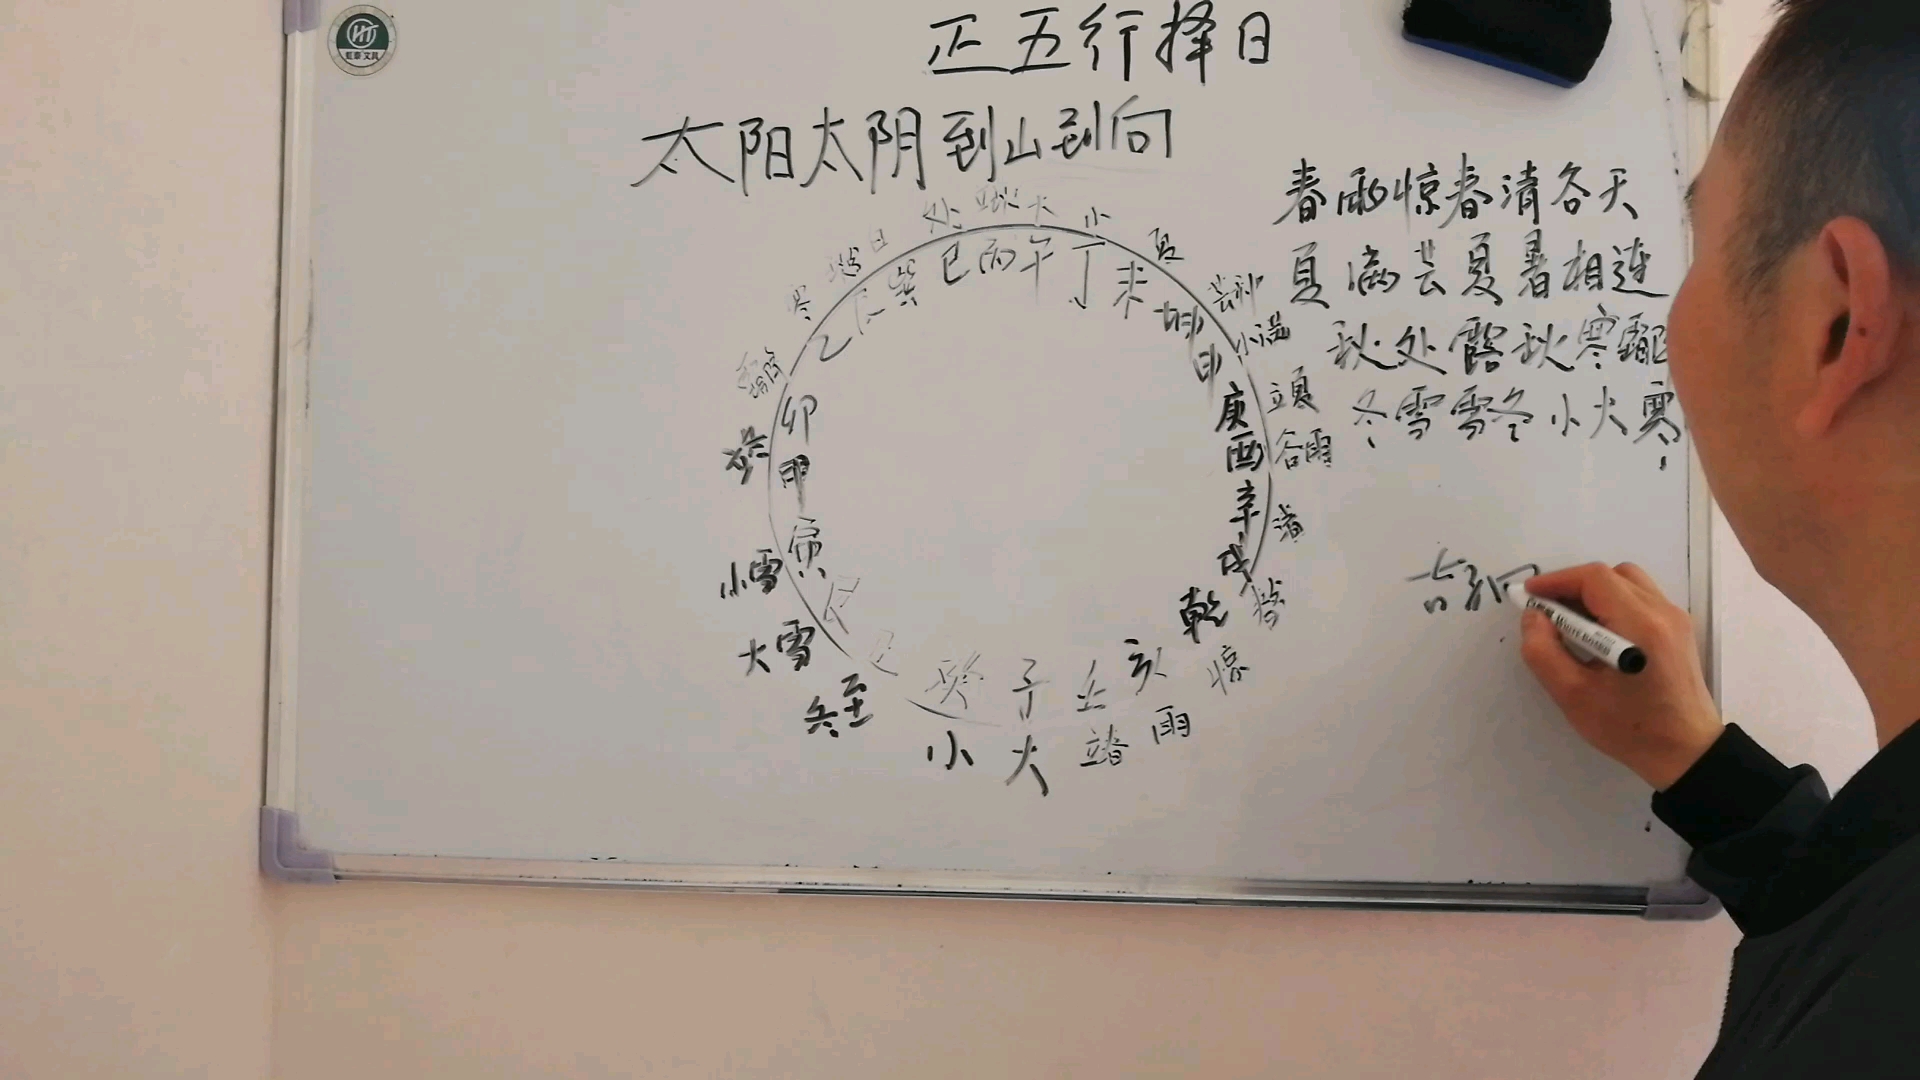 正五行择日
太阳太阴到山到向
春雨惊春清谷天
夏满芒夏暑相连
秋处露秋寒霜
冬雪雪冬小大寒
处 大 小
夏
芒种
小满
立夏
谷雨
清
惊
雨
立春
大
小
冬至
大雪
小雪
寒
乙 辰 巽 巳 丙 午 丁 未 坤 申
庚
酉
辛
戌
乾
亥
壬
子
癸
寅
甲
卯
吉